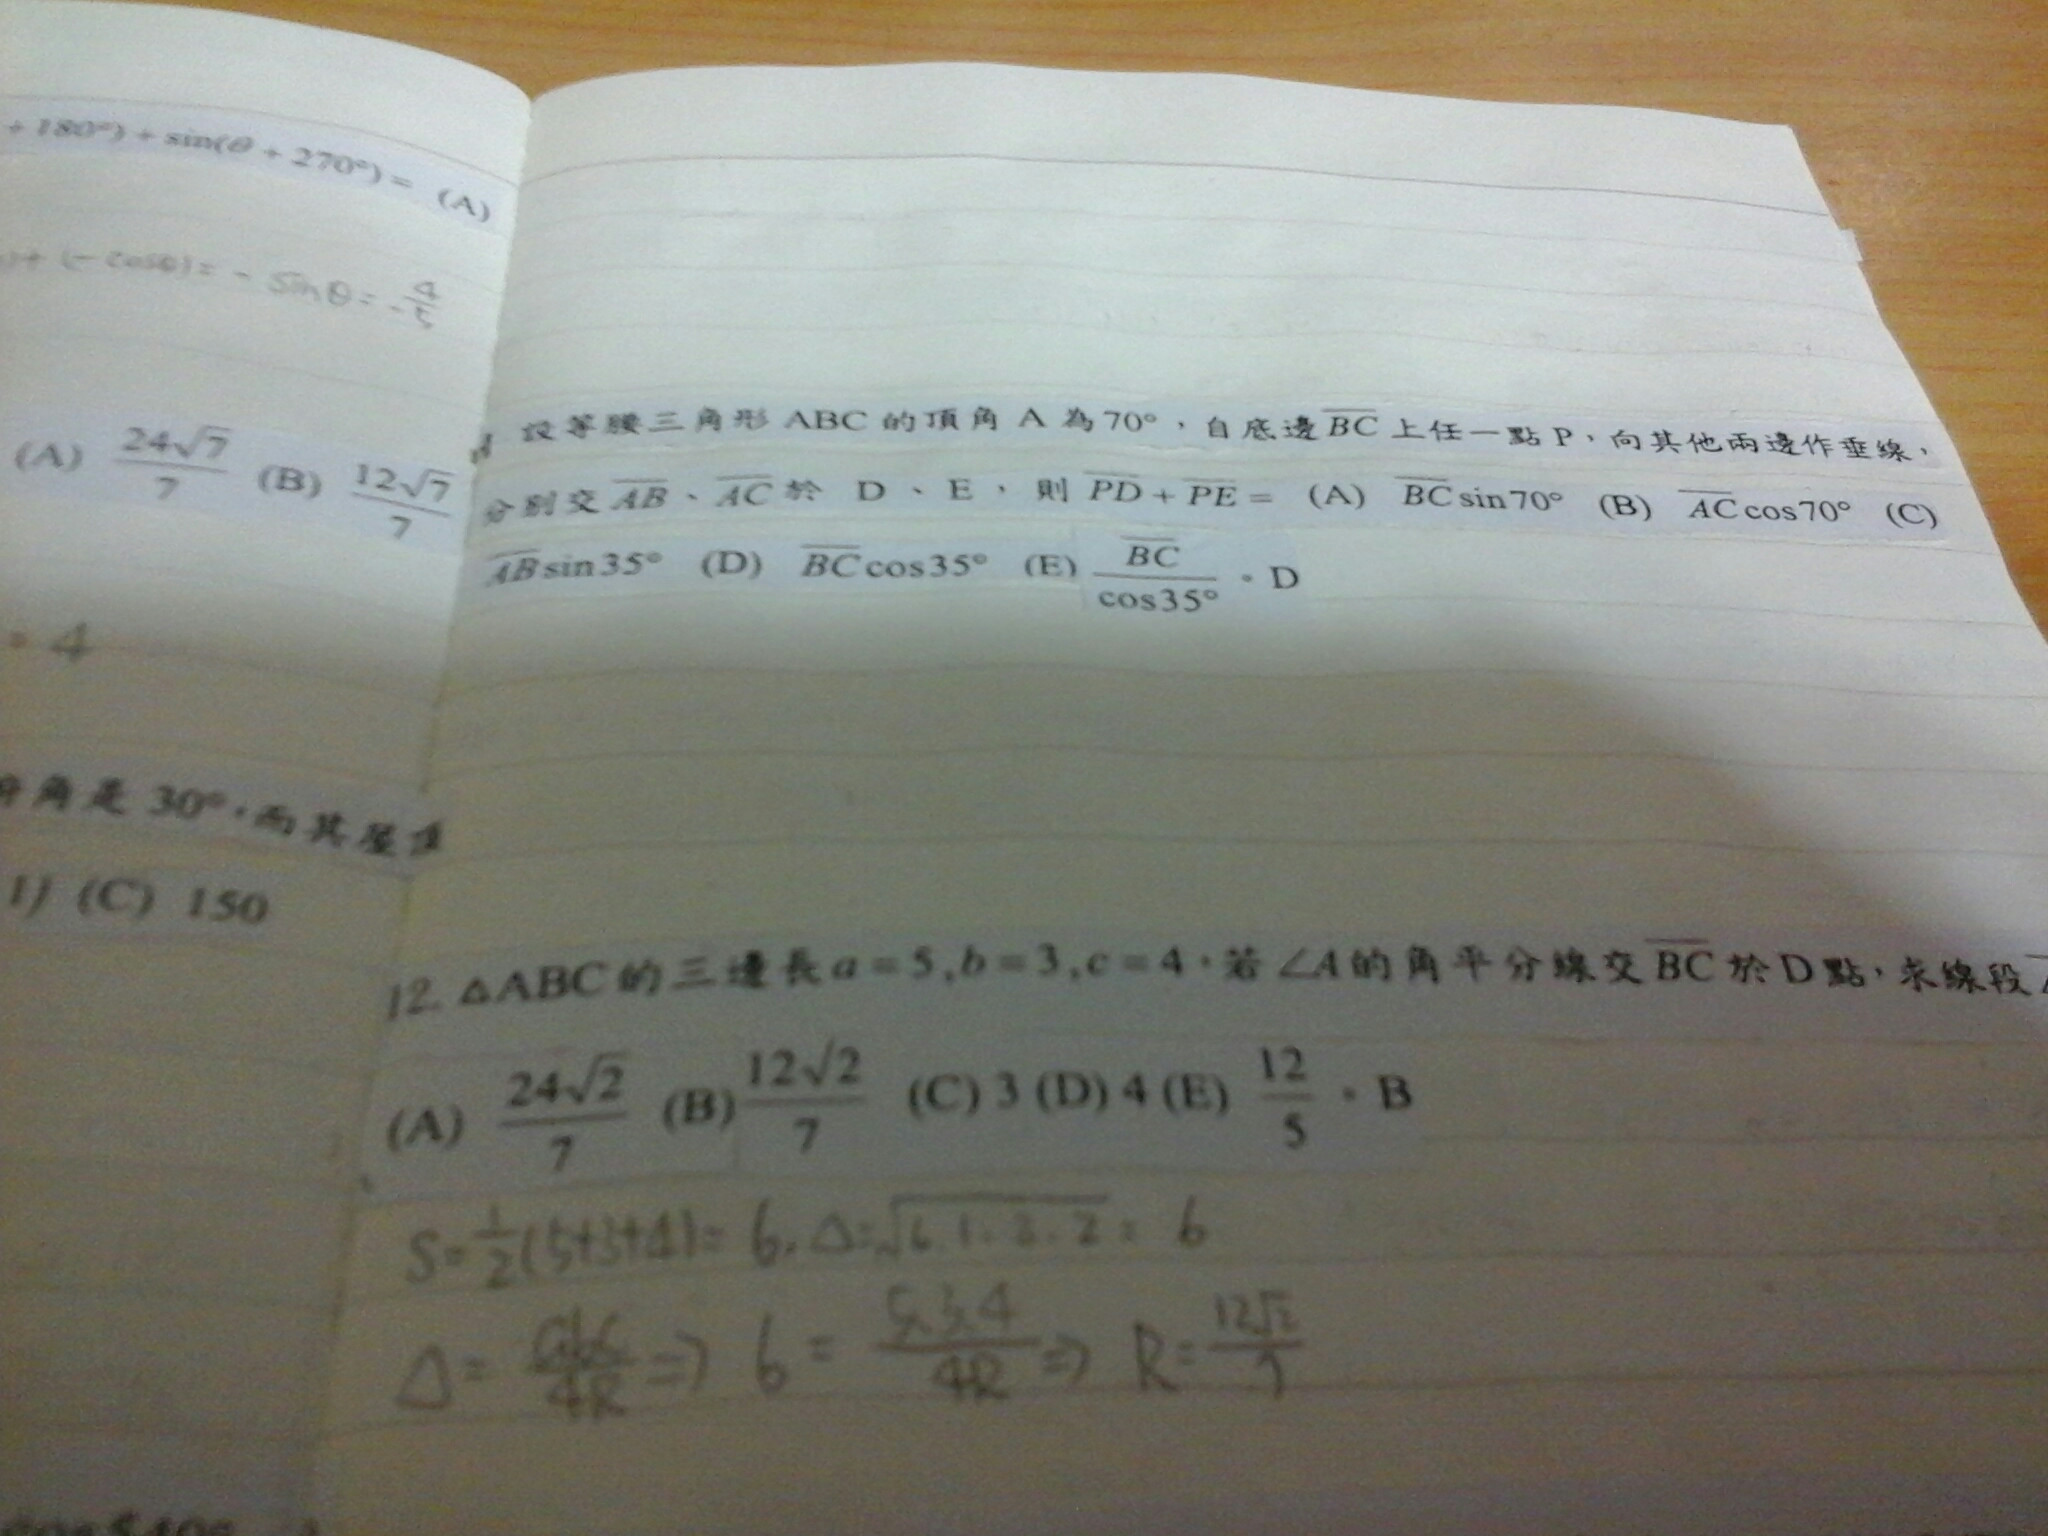 + 180°) + sin(θ + 270°) = (A)
+ (- cosθ) = - sinθ = - 4/5
(A) 24√7/7 (B) 12√7/7
• 4
角是 30°，而其
1) (C) 150
設等腰三角形 ABC 的頂角 A 為 70°，自底邊 \overline{BC} 上任一點 P，向其他兩邊作垂線，
分別交 \overline{AB}、\overline{AC} 於 D、E，則 \overline{PD} + \overline{PE} = (A) \overline{BC} sin70° (B) \overline{AC} cos70° (C)
\overline{AB} sin35° (D) \overline{BC} cos35° (E) \overline{BC}/cos35° 。D
12. △ABC 的三邊長 a = 5, b = 3, c = 4，若 ∠A 的角平分線交 \overline{BC} 於 D 點，求線段
(A) 24√2/7 (B) 12√2/7 (C) 3 (D) 4 (E) 12/5 。B
S = 1/2 (5+3+4) = 6, △ = √6.1.3.2 = 6
△ = abc/4R ⇒ 6 = 5.3.4/4R ⇒ R = 12√2/7